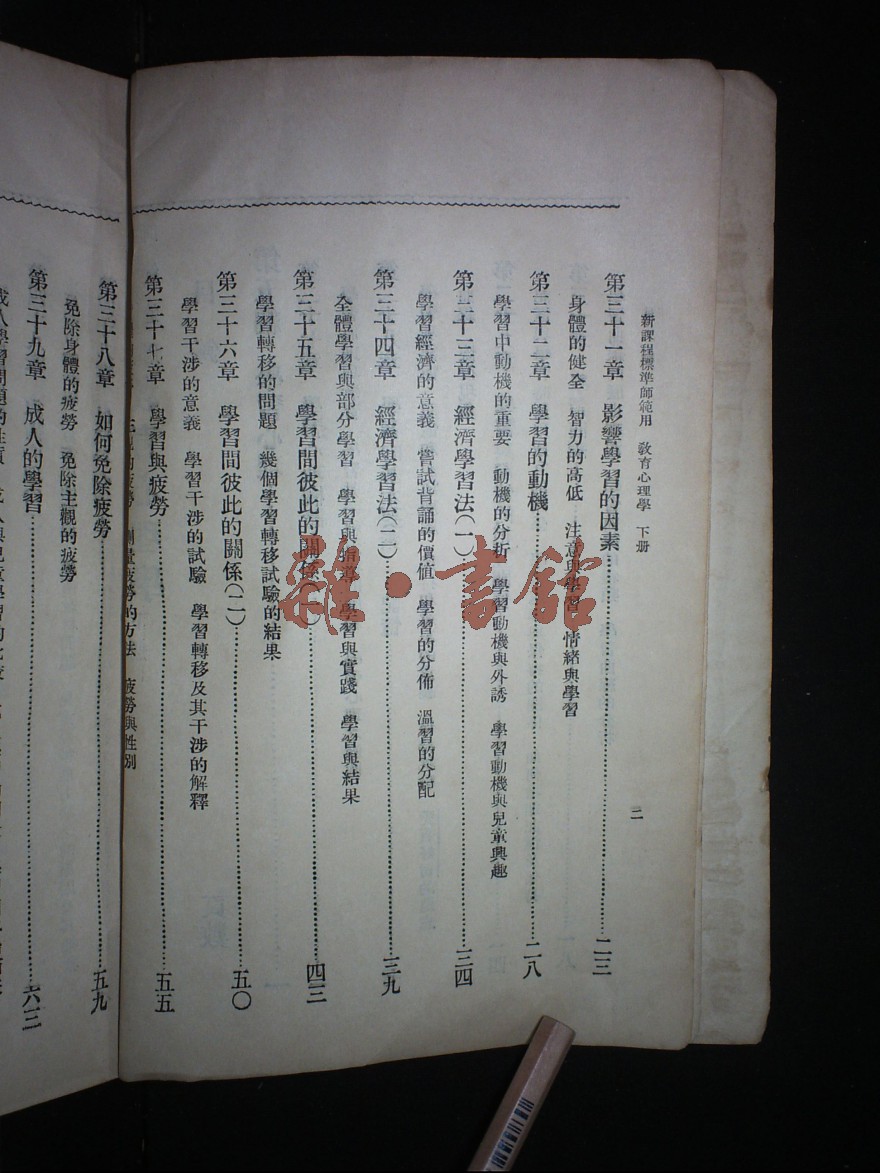 新課程標準師範用　教育心理學　下册
二
第三十一章　影響學習的因素……二三
身體的健全　智力的高低　注意與學習　情緒與學習
第三十二章　學習的動機……二八
學習中動機的重要　動機的分析　學習動機與外誘　學習動機與兒童興趣
第三十三章　經濟學習法(一)……三四
學習經濟的意義　嘗試背誦的價值　學習的分佈　溫習的分配
第三十四章　經濟學習法(二)……三九
全體學習與部分學習　學習與指導　學習與實踐　學習與結果
第三十五章　學習間彼此的關係(一)……四三
學習轉移的問題　幾個學習轉移試驗的結果
第三十六章　學習間彼此的關係(二)……五〇
學習干涉的意義　學習干涉的試驗　學習轉移及其干涉的解釋
第三十七章　學習與疲勞……五五
疲勞　測量疲勞的方法　疲勞與性別
第三十八章　如何免除疲勞……五九
免除身體的疲勞　免除主觀的疲勞
第三十九章　成人的學習……六三
成人學習問題的性質
雜·書館